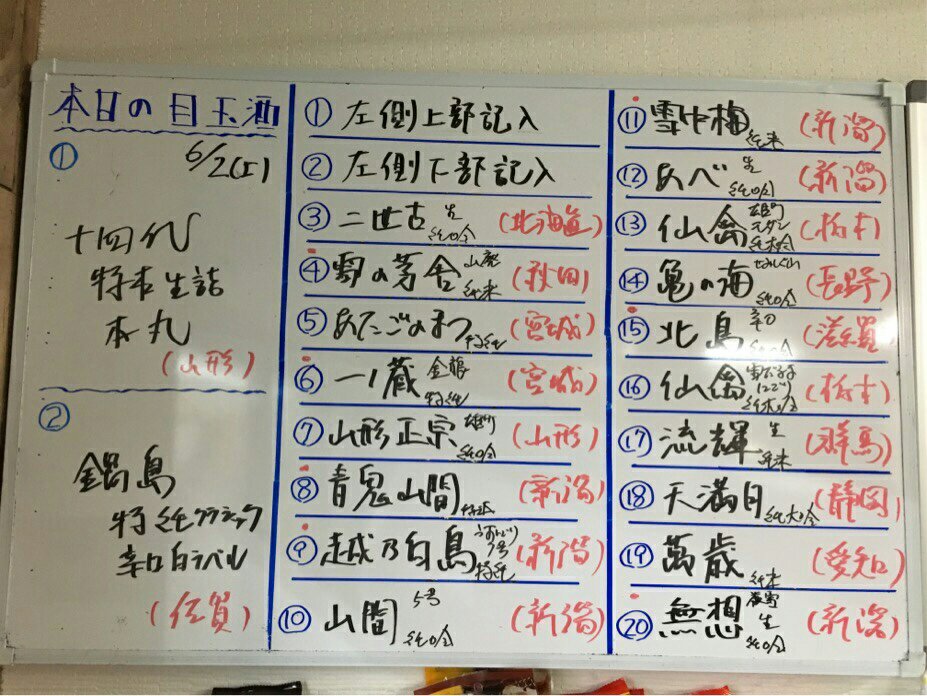 本日の目玉酒
① 6/2(土)
十四代
特本生詰
本丸
(山形)
②
鍋島
特純クラシック
辛口白ラベル
(佐賀)
① 左側上部記入
② 左側下部記入
③ 二世古 生 純吟 (北海道)
④ 雪の茅舎 山廃 純米 (秋田)
⑤ あたごのまつ 特純 (宮城)
⑥ 一ノ蔵 金龍 特純 (宮城)
⑦ 山形正宗 雄町 純吟 (山形)
⑧ 青鬼山間 特純 (新潟)
⑨ 越乃白鳥 うすにごり 7号 特純 (新潟)
⑩ 山間 5号 純吟 (新潟)
⑪ 雪中梅 純米 (新潟)
⑫ あべ 生 純吟 (新潟)
⑬ 仙禽 雄町 モダン 純大吟 (栃木)
⑭ 亀の海 純吟 (長野)
⑮ 北島 辛口 (滋賀)
⑯ 仙禽 にごり (栃木)
⑰ 流輝 生 純米 (群馬)
⑱ 天満月 純大吟 (静岡)
⑲ 萬歳 純米 (愛知)
⑳ 無想 生 純吟 (新潟)